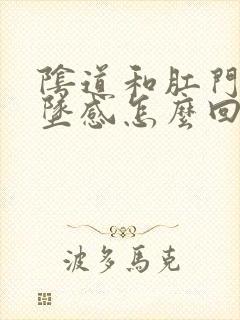 陰道和肛門
墜感怎麼回
波多馬克